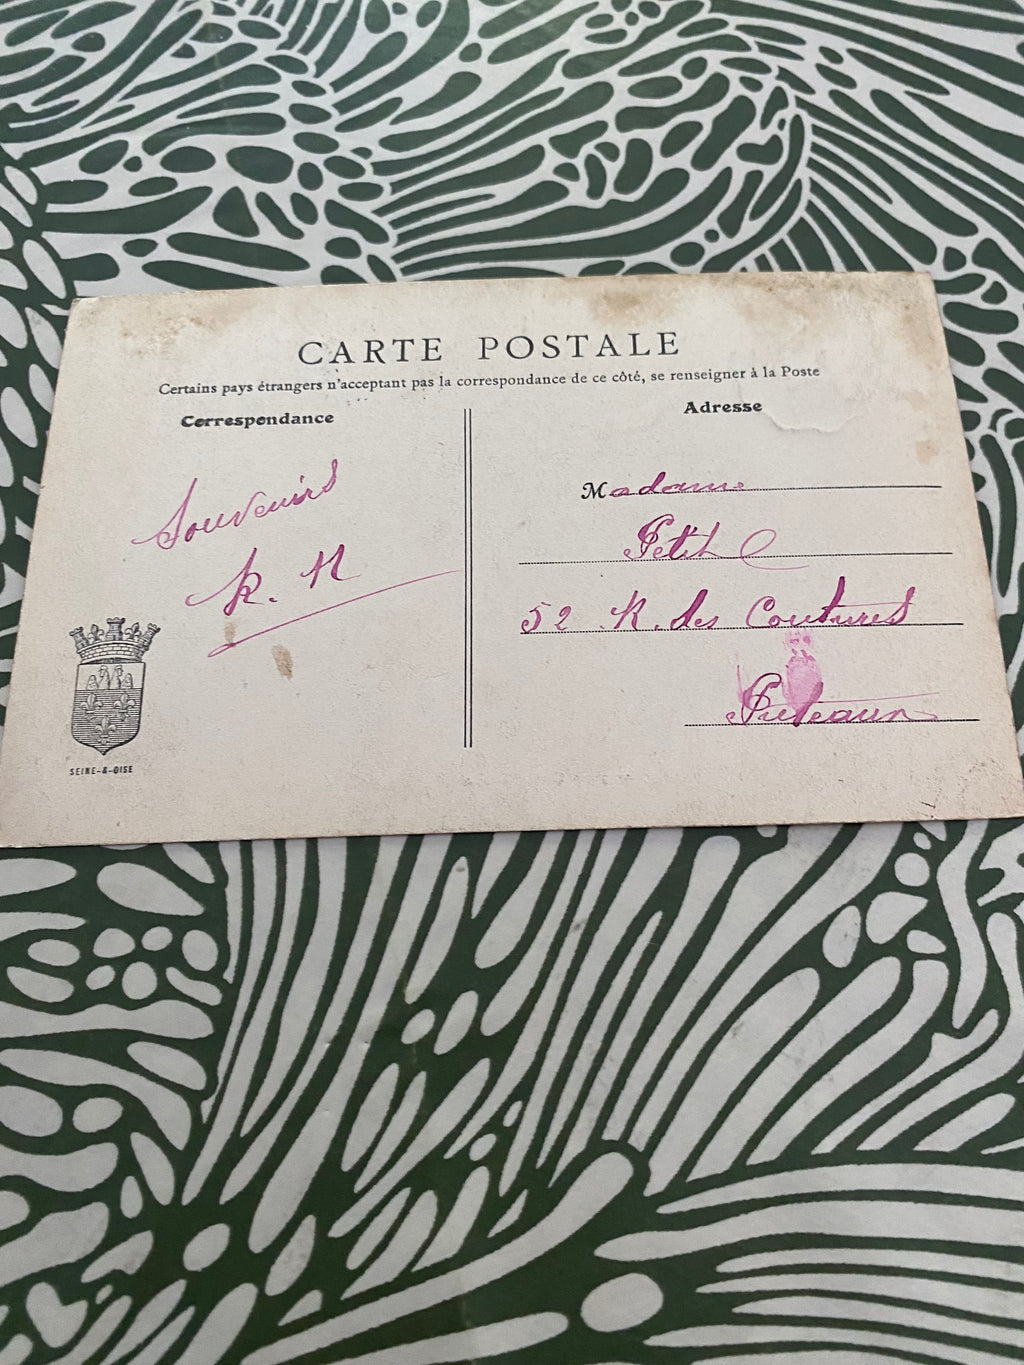 CARTE POSTALE
Certains pays étrangers n'acceptant pas la correspondance de ce côté, se renseigner à la Poste
Correspondance
Adresse
Souvenirs
Madame
Petit
52 R. des Coutures
Puteaux
SEINE-&-OISE